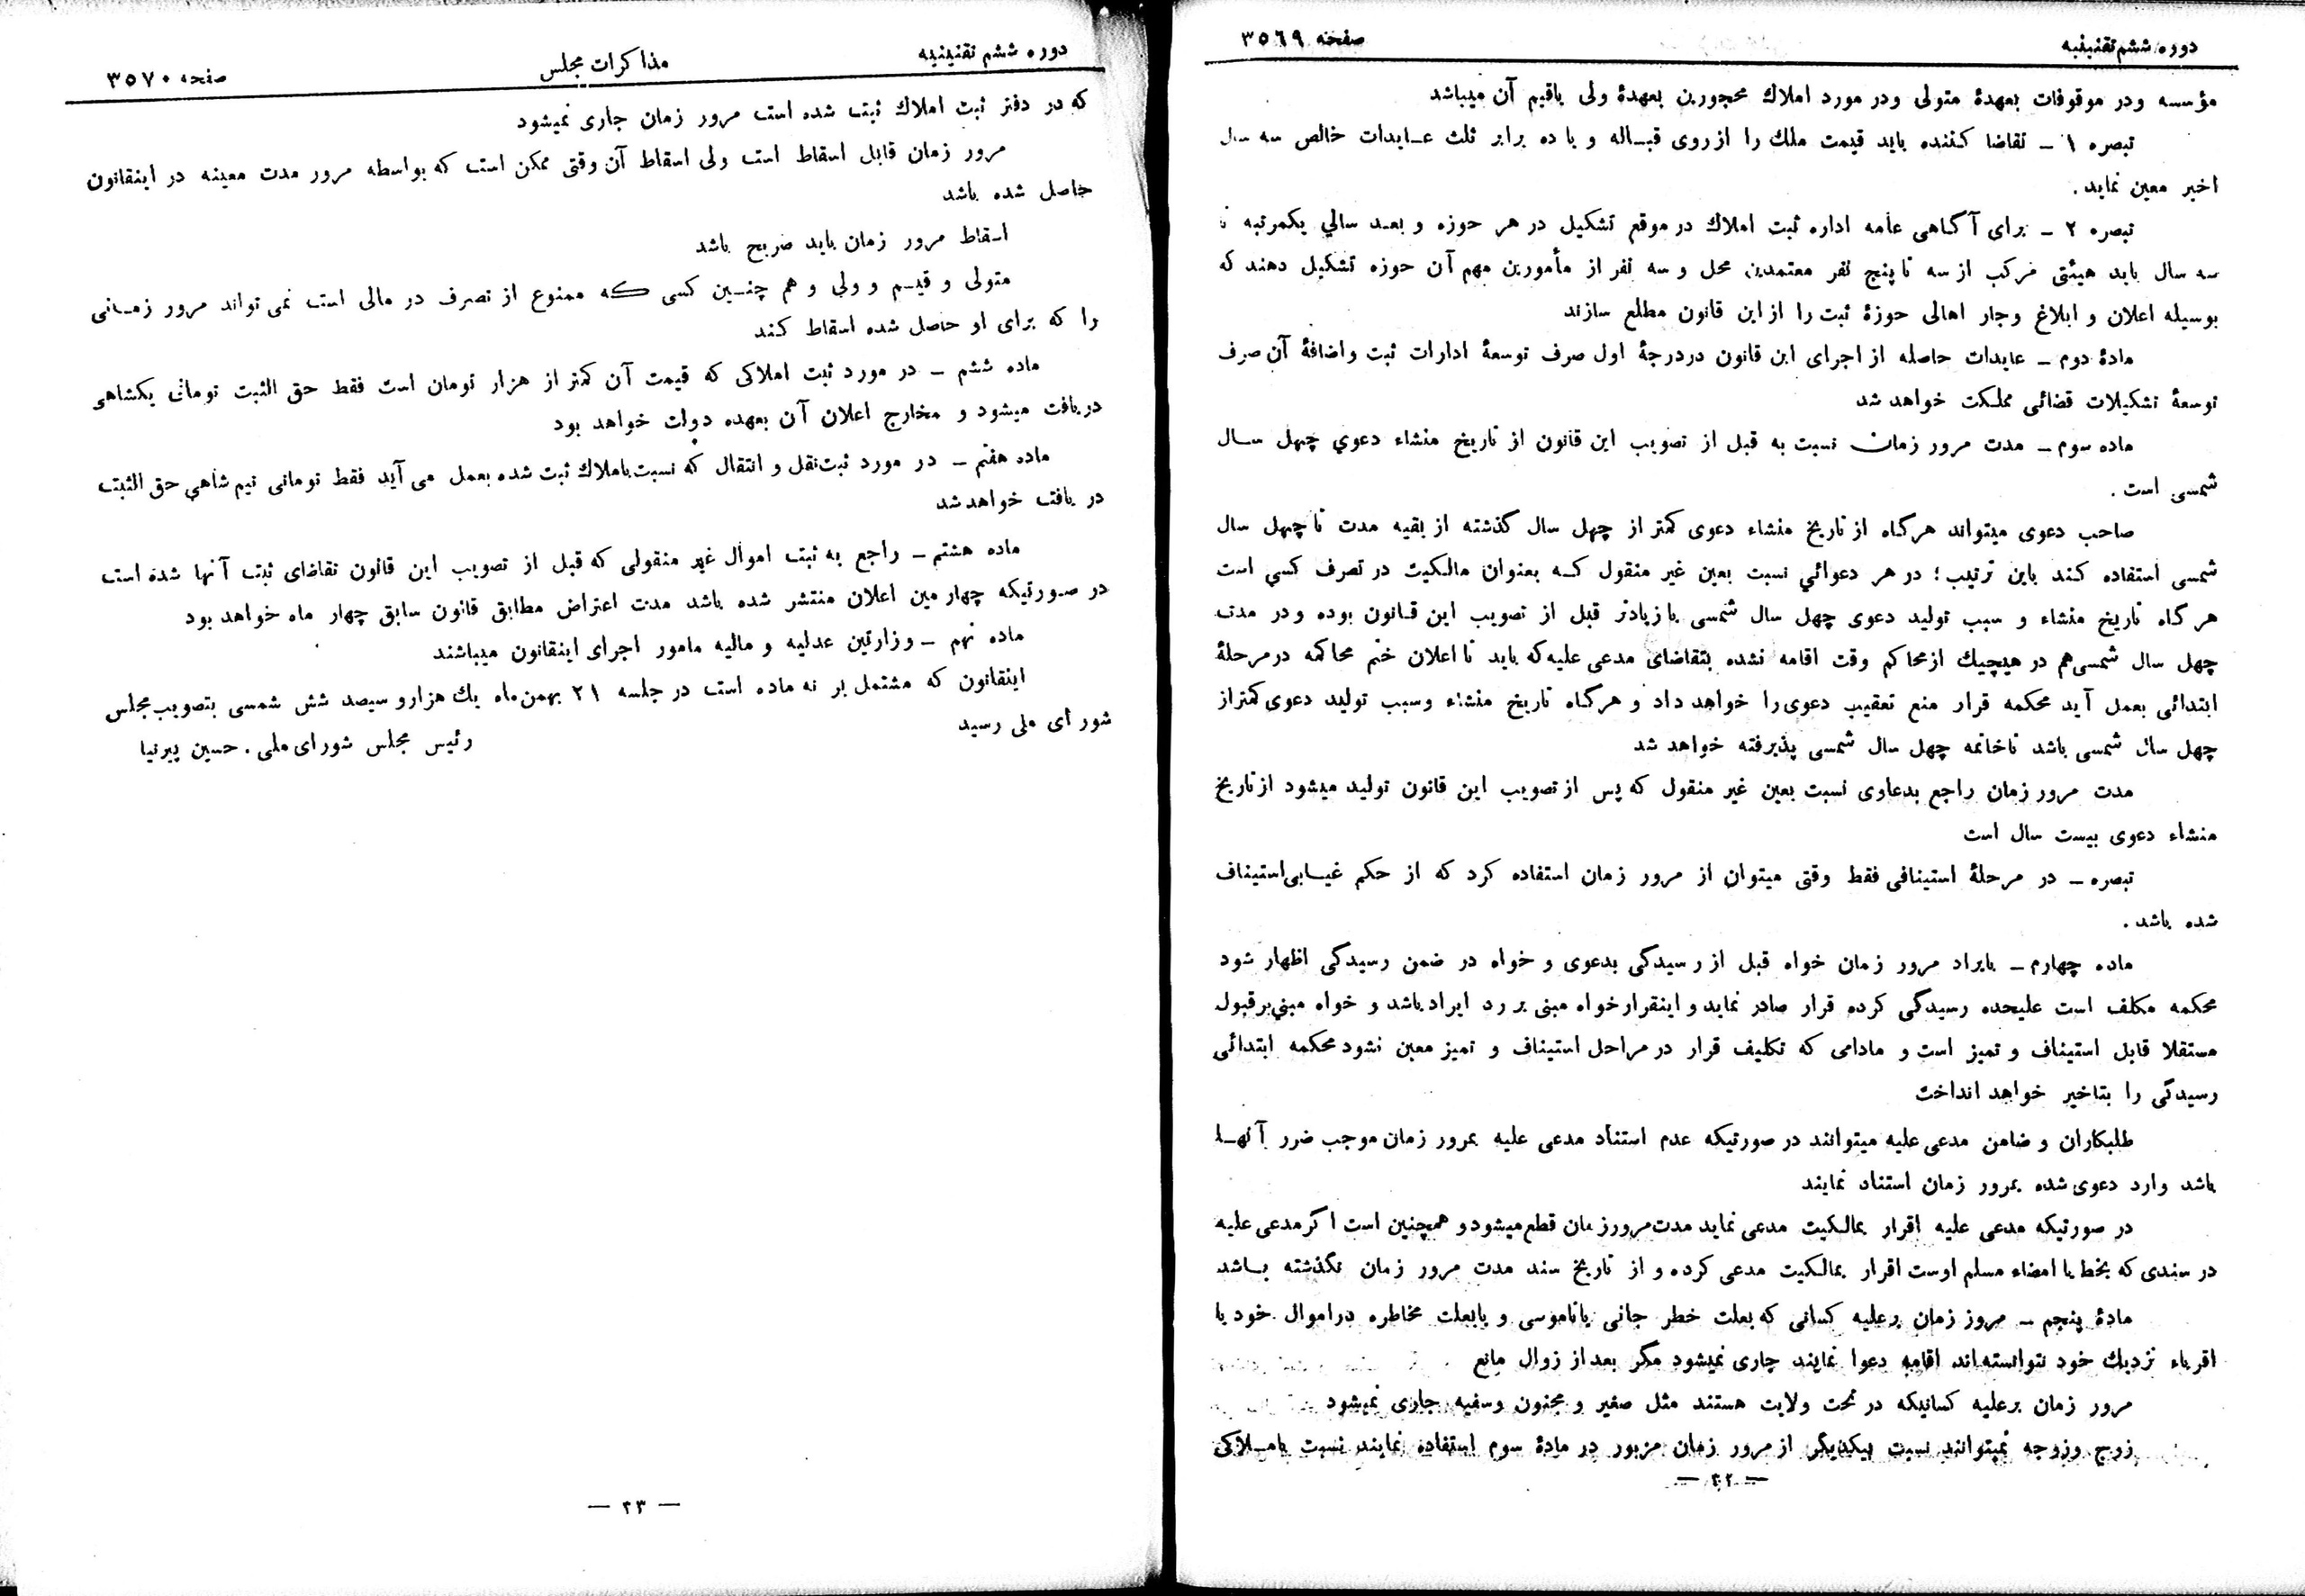 دوره ششم تقنینیه
صفحه ۳۵۶۹
مؤسسه ودر موقوفات بعهدهٔ متولی ودر مورد املاك محجورین بعهدهٔ ولی یاقیم آن میباشد
تبصره ۱ ــ تقاضا کننده باید قیمت ملك را از روی قبـاله و یا ده برابر ثلث عـایدات خالص سه سال
اخیر معین نماید .
تبصره ۲ ــ برای آگاهی عامه اداره ثبت املاك در موقع تشکیل در هر حوزه و بعـد سالي یکمرتبه تا
سه سال باید هیئتی مرکب از سه تا پنج نفر معتمدین محل و سه نفر از مأمورین مهم آن حوزه تشکیل دهند که
بوسیله اعلان و ابلاغ وجار اهالی حوزهٔ ثبت را از این قانون مطلع سازند
مادهٔ دوم ــ عایدات حاصله از اجرای این قانون دردرجهٔ اول صرف توسعهٔ ادارات ثبت واضافهٔ آن صرف
توسعهٔ تشکیلات قضائی مملکت خواهد شد
ماده سوم ــ مدت مرور زمان نسبت به قبل از تصویب این قانون از تاریخ منشاء دعوي چهل سـال
شمسی است .
صاحب دعوی میتواند هرگاه از تاریخ منشاء دعوی کمتر از چهل سال گذشته از بقیه مدت تا چهل سال
شمسی استفاده کند باین ترتیب ؛ در هر دعوائي نسبت بعین غیر منقول کـه بعنوان مالکیت در تصرف کسي است
هر گاه تاریخ منشاء و سبب تولید دعوی چهل سال شمسی یا زیادتر قبل از تصویب این قـانون بوده و در مدت
چهل سال شمسی‌هم در هیچیك از محاکم وقت اقامه نشده بتقاضای مدعی علیه‌که باید تا اعلان ختم محاکمه در مرحلهٔ
ابتدائی بعمل آید محکمه قرار منع تعقیب دعوی‌را خواهد داد و هرگاه تاریخ منشاء وسبب تولید دعوی کمتراز
چهل سال شمسی باشد تاخاتمه چهل سال شمسی پذیرفته خواهد شد
مدت مرور زمان راجع بدعاوی نسبت بعین غیر منقول که پس از تصویب این قانون تولید میشود از تاریخ
منشاء دعوی بیست سال است
تبصره ــ در مرحلهٔ استینافی فقط وقتی میتوان از مرور زمان استفاده کرد که از حکم غیـابی‌استیناف
شده باشد .
ماده چهارم ــ بایراد مرور زمان خواه قبل از رسیدگی بدعوی و خواه در ضمن رسیدگی اظهار شود
محکمه مکلف است علیحده رسیدگی کرده قرار صادر نماید و اینقرار خواه مبنی بر رد ایراد باشد و خواه مبني‌برقبول
مستقلا قابل استیناف و تمیز است و مادامی که تکلیف قرار در مراحل استیناف و تمیز معین نشود محکمه ابتدائی
رسیدگی را بتاخیر خواهد انداخت
طلبکاران و ضامن مدعی علیه میتوانند در صورتیکه عدم استناد مدعی علیه بمرور زمان موجب ضرر آنهـا
باشد وارد دعوی شده بمرور زمان استناد نمایند
در صورتیکه مدعی علیه اقرار بمالکیت مدعی نماید مدت مرور زمان قطع میشود و همچنین است اگر مدعی علیه
در سندی که بخط یا امضاء مسلم اوست اقرار بمالکیت مدعی کرده و از تاریخ سند مدت مرور زمان نگذشته بـاشد
مادهٔ پنجم ــ مروز زمان برعلیه کسانی که بعلت خطر جانی یاناموسی و یابعلت مخاطره دراموال خود یا
اقرباء نزدیك خود نتوانسته‌اند اقامه دعوا نمایند جاری نمیشود مگر بعد از زوال مانع
مرور زمان برعلیه کسانیکه در تحت ولایت هستند مثل صغیر و مجنون وسفیه جاری نمیشود
زوج وزوجه نمیتوانند نسبت بیکدیگر از مرور زمان مزبور در مادهٔ سوم استفاده نمایند نسبت باملاکی
— ۲۲ —
دوره ششم تقنینیه
مذاکرات مجلس
صفحه ۳۵۷۰
که در دفتر ثبت املاك ثبت شده است مرور زمان جاری نمیشود
مرور زمان قابل اسقاط است ولی اسقاط آن وقتی ممکن است که بواسطه مرور مدت معینه در اینقانون
حاصل شده باشد
اسقاط مرور زمان باید صریح باشد
متولی و قیـم و ولی و هم چنـین کسی که ممنوع از تصرف در مالی است نمی تواند مرور زمـانی
را که برای او حاصل شده اسقاط کند
ماده ششم ــ در مورد ثبت املاکی که قیمت آن کمتر از هزار تومان است فقط حق الثبت تومانی یکشاهی
دریافت میشود و مخارج اعلان آن بعهده دولت خواهد بود
ماده هفتم ــ در مورد ثبت نقل و انتقال که نسبت باملاك ثبت شده بعمل می آید فقط تومانی نیم شاهي حق الثبت
در یافت خواهد شد
ماده هشتم ــ راجع به ثبت اموال غیر منقولی که قبل از تصویب این قانون تقاضای ثبت آنها شده است
در صورتیکه چهار مین اعلان منتشر شده باشد مدت اعتراض مطابق قانون سابق چهار ماه خواهد بود
ماده نهم ــ وزارتین عدلیه و مالیه مامور اجرای اینقانون میباشند
اینقانون که مشتمل بر نه ماده است در جلسه ۲۱ بهمن ماه یك هزارو سیصد شش شمسی بتصویب مجلس
شورای ملی رسید
رئیس مجلس شورای ملی . حسین پیرنیا
— ۲۳ —